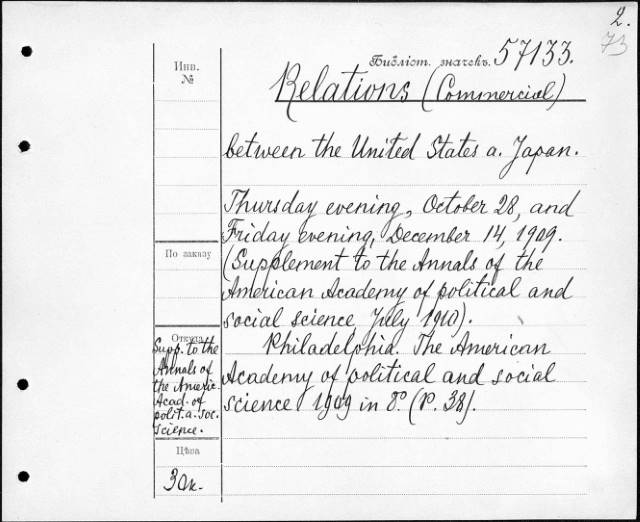 2.
73
Инв.
№
Библіот. значекъ. 57133.
Relations (Commercial)
between the United States a. Japan.
Thursday evening, October 28, and
Friday evening, December 14, 1909.
(Supplement to the Annals of the
American Academy of political and
social science, July 1910).
Philadelphia. The American
Academy of political and social
science 1909 in 8º. (P. 38).
По заказу
Откуда
Supp. to the
Annals of
the Americ.
Acad. of
polit. a. soc.
science.
Цѣна
Зак.